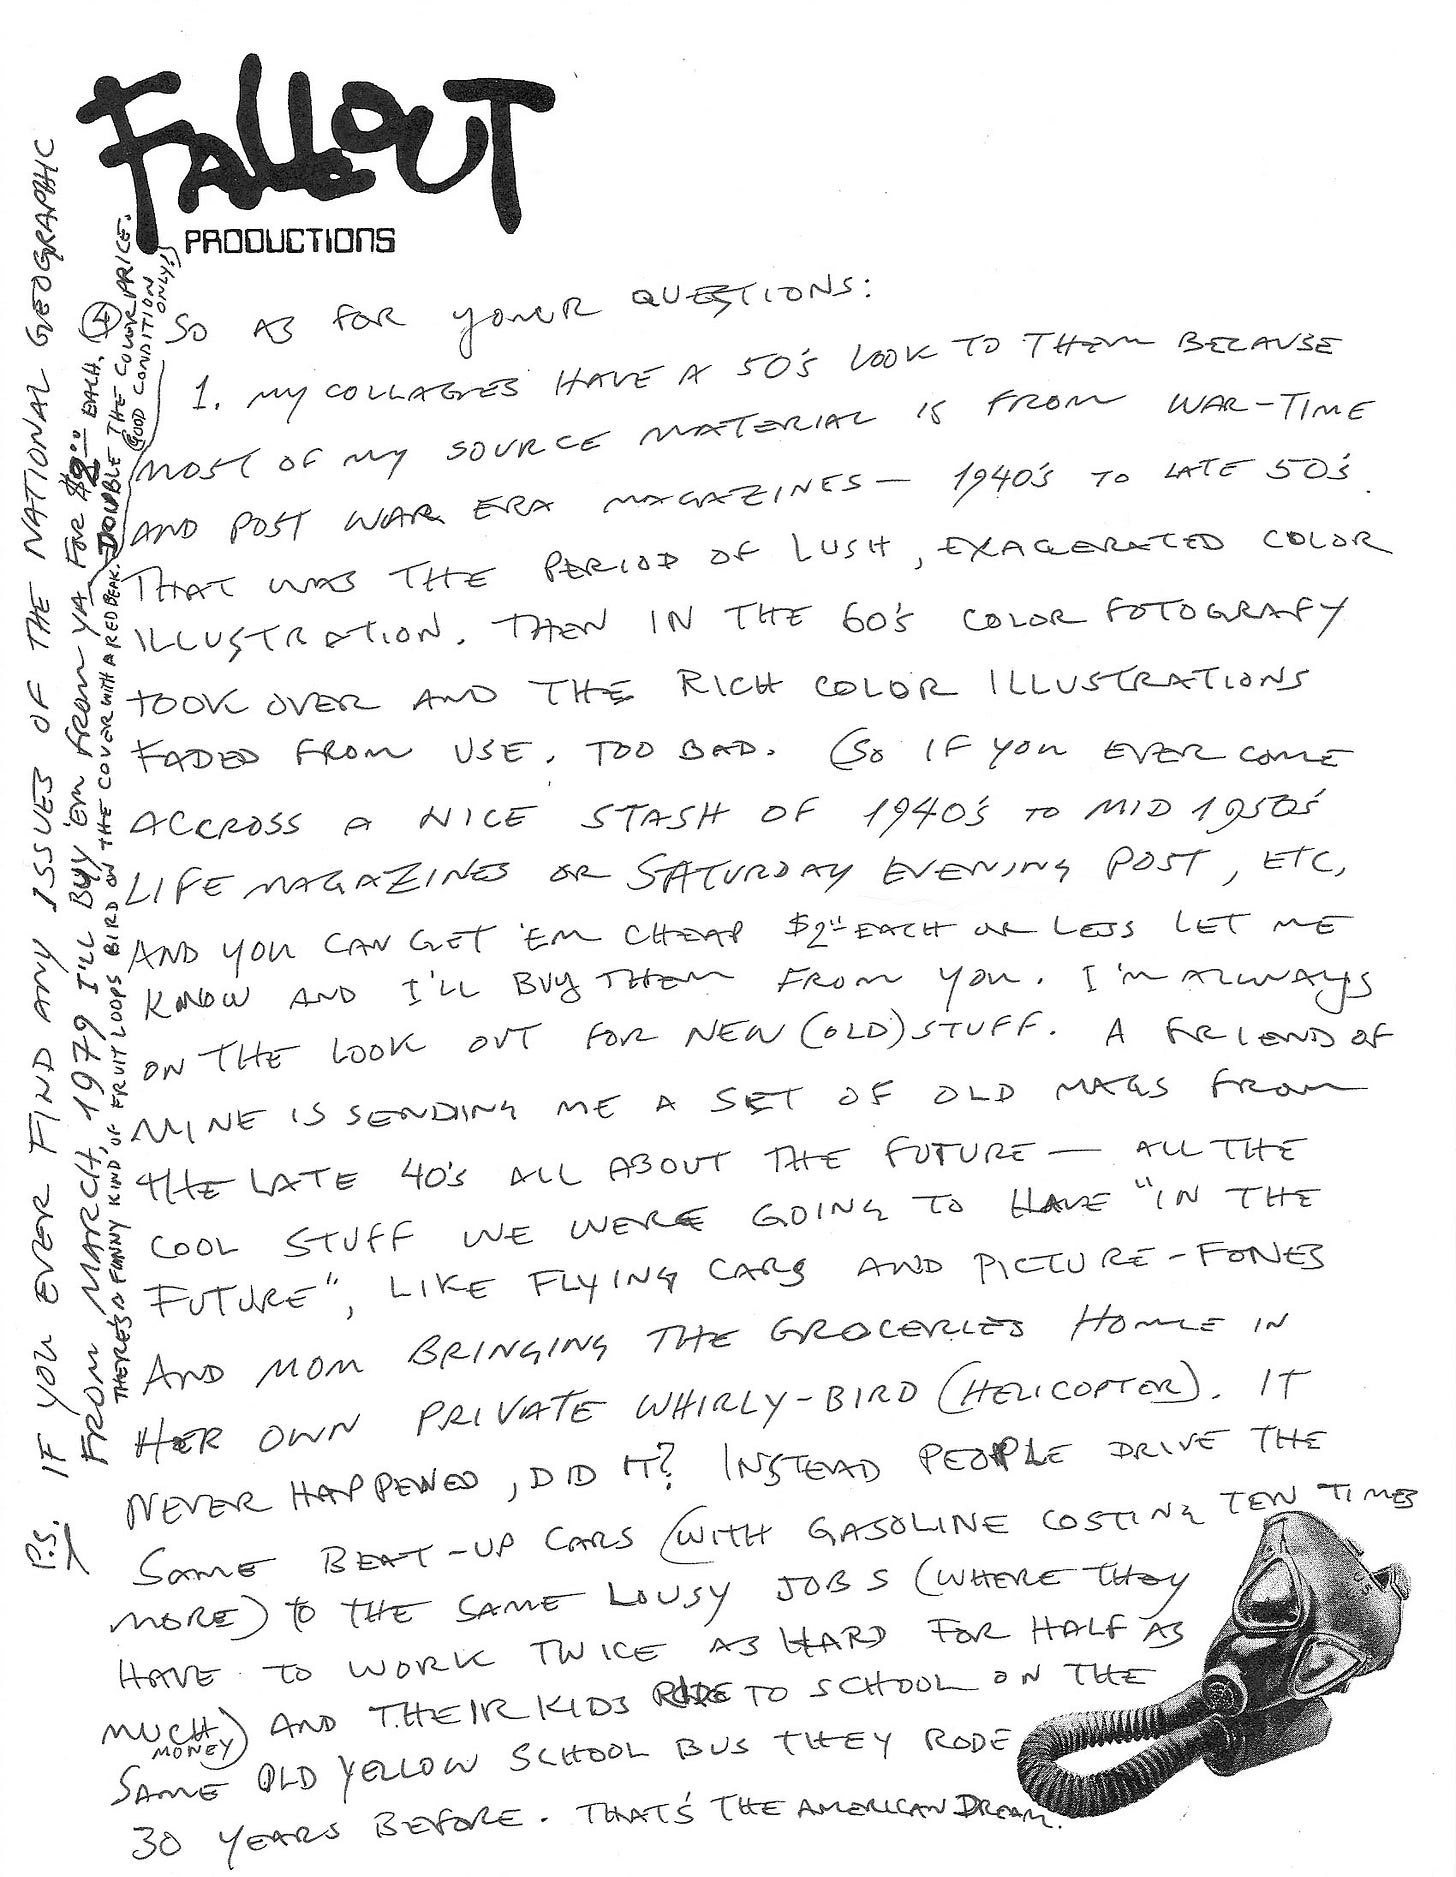 FALLOUT
PRODUCTIONS
SO AS FOR YOUR QUESTIONS:
1. MY COLLAGES HAVE A 50'S LOOK TO THEM BECAUSE
MOST OF MY SOURCE MATERIAL IS FROM WAR-TIME
AND POST WAR ERA MAGAZINES— 1940'S TO LATE 50'S.
THAT WAS THE PERIOD OF LUSH, EXAGERATED COLOR
ILLUSTRATION. THEN IN THE 60'S COLOR FOTOGRAFY
TOOK OVER AND THE RICH COLOR ILLUSTRATIONS
FADED FROM USE. TOO BAD. (SO IF YOU EVER COME
ACCROSS A NICE STASH OF 1940'S TO MID 1950'S
LIFE MAGAZINES OR SATURDAY EVENING POST, ETC,
AND YOU CAN GET 'EM CHEAP $2 EACH OR LESS LET ME
KNOW AND I'LL BUY THEM FROM YOU. I'M ALLWAYS
ON THE LOOK OUT FOR NEW (OLD) STUFF. A FRIEND OF
MINE IS SENDING ME A SET OF OLD MAGS FROM
THE LATE 40'S ALL ABOUT THE FUTURE — ALL THE
COOL STUFF WE WERE GOING TO HAVE "IN THE
FUTURE", LIKE FLYING CARS AND PICTURE-FONES
AND MOM BRINGING THE GROCERIES HOME IN
HER OWN PRIVATE WHIRLY-BIRD (HELICOPTER). IT
NEVER HAPPENED, DID IT? INSTEAD PEOPLE DRIVE THE
SAME BEAT-UP CARS (WITH GASOLINE COSTING TEN TIMES
MORE) TO THE SAME LOUSY JOBS (WHERE THEY
HAVE TO WORK TWICE AS HARD FOR HALF AS
MUCH MONEY) AND THEIR KIDS RIDE TO SCHOOL ON THE
SAME OLD YELLOW SCHOOL BUS THEY RODE
30 YEARS BEFORE. THAT'S THE AMERICAN DREAM.
US
P.S. IF YOU EVER FIND ANY ISSUES OF THE NATIONAL GEOGRAPHIC
FROM MARCH, 1979 I'LL BUY 'EM FROM YA FOR EACH.
THERE'S A FUNNY KIND OF FRUIT LOOPS BIRD ON THE COVER WITH A RED BEAK. DOUBLE THE COVER PRICE.
(GOOD CONDITION
ONLY!)